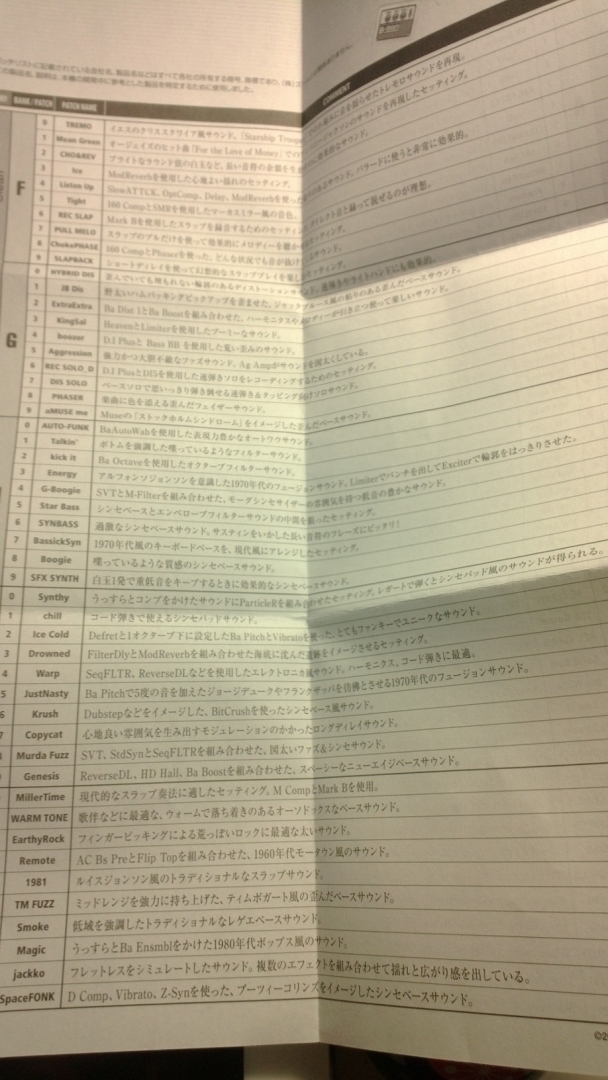 COMMENT
BANK/PATCH PATCH NAME
F
0 TREMO
1 Mean Green オージェイズのヒット曲「For the Love of Money」での
2 CHO&REV
3 Ice ModReverbを使用した心地よい揺れのセッティング。
4 Listen Up SlowATTCK, OptComp, Delay, ModReverbを使った
5 Tight 160 CompとSMRを使用したマーカスミラー風の音色。
6 REC SLAP Mark Bを使用したスラップを録音するためのセッティング
7 PULL MELO スラップのプルだけを使って効果的にメロディーを
8 ChokoPHASE 160 CompとPhaserを使った、どんな状況でも音が
9 SLAPBACK ショートディレイを使って幻想的なスラッププレイを
G
0 HYBRID DIS 歪んでいても埋もれない輪郭のあるディストーション
1 JB Dis 野太いハムバッキングピックアップを歪ませた、ジャックブルース風の粘りのある歪んだベースサウンド。
2 ExtraExtra Ba Dist 1とBa Boostを組み合わせた、ハーモニクスやメロディーが引き立つ使って楽しいサウンド。
3 KingSal HeavenとLimiterを使用したブーミーなサウンド。
4 boozer D.I PlusとBass BBを使用した荒い歪みのサウンド。
5 Aggression 強力かつ大胆不敵なファズサウンド。Ag Ampがサウンドを図太くしている。
6 REC SOLO_D D.I PlusとDISを使用した速弾きソロをレコーディングするためのセッティング。
7 DIS SOLO ベースソロで思いっきり弾き倒せる速弾き&タッピング向けソロサウンド。
8 PHASER 楽曲に色を添える歪んだフェイザーサウンド。
9 aMUSE me Museの「ストックホルムシンドローム」をイメージした歪んだベースサウンド。
0 AUTO-FUNK BaAutoWahを使用した表現力豊かなオートワウサウンド。
1 Talkin' ボトムを強調した喋っているようなフィルターサウンド。
2 kick it Ba Octaveを使用したオクターブフィルターサウンド。
3 Energy アルフォンソジョンソンを意識した1970年代のフュージョンサウンド。Limiterでパンチを出してExciterで輪郭をはっきりさせた。
4 G-Boogie SVTとM-Filterを組み合わせた、モーグシンセサイザーの雰囲気を持つ低音の豊かなサウンド。
5 Star Bass シンセベースとエンベロープフィルターサウンドの中間を狙ったセッティング。
6 SYNBASS 過激なシンセベースサウンド。サスティンをいかした長い音符のフレーズにピッタリ!
7 BassickSyn 1970年代風のキーボードベースを、現代風にアレンジしたセッティング。
8 Boogie 喋っているような質感のシンセベースサウンド。
9 SFX SYNTH 白玉1発で重低音をキープするときに効果的なシンセベースサウンド。
0 Synthy うっすらとコンプをかけたサウンドにParticleRを組み合わせたセッティング。レガートで弾くとシンセパッド風のサウンドが得られる。
1 chill コード弾きで使えるシンセパッドサウンド。
2 Ice Cold Defretと1オクターブ下に設定したBa PitchとVibratoを使った、とてもファンキーでユニークなサウンド。
3 Drowned FilterDlyとModReverbを組み合わせた海底に沈んだ遺跡をイメージさせるセッティング。
4 Warp SeqFLTR、ReverseDLなどを使用したエレクトロニカ風サウンド。ハーモニクス、コード弾きに最適。
5 JustNasty Ba Pitchで5度の音を加えたジョージデュークやフランクザッパを彷彿とさせる1970年代のフュージョンサウンド。
6 Krush Dubstepなどをイメージした、BitCrushを使ったシンセベース風サウンド。
7 Copycat 心地良い雰囲気を生み出すモジュレーションのかかったロングディレイサウンド。
Murda Fuzz SVT、StdSynとSeqFLTRを組み合わせた、図太いファズ&シンセサウンド。
Genesis ReverseDL、HD Hall、Ba Boostを組み合わせた、スペーシーなニューエイジベースサウンド。
MillerTime 現代的なスラップ奏法に適したセッティング。M CompとMark Bを使用。
WARM TONE 歌伴などに最適な、ウォームで落ち着きのあるオーソドックスなベースサウンド。
EarthyRock フィンガーピッキングによる荒っぽいロックに最適な太いサウンド。
Remote AC Bs PreとFlip Topを組み合わせた、1960年代モータウン風のサウンド。
1981 ルイスジョンソン風のトラディショナルなスラップサウンド。
TM FUZZ ミッドレンジを強力に持ち上げた、ティムボガート風の歪んだベースサウンド。
Smoke 低域を強調したトラディショナルなレゲエベースサウンド。
Magic うっすらとBa Ensmblをかけた1980年代ポップス風のサウンド。
jackko フレットレスをシミュレートしたサウンド。複数のエフェクトを組み合わせて揺れと広がり感を出している。
SpaceFONK D Comp、Vibrato、Z-Synを使った、ブーツィーコリンズをイメージしたシンセベースサウンド。